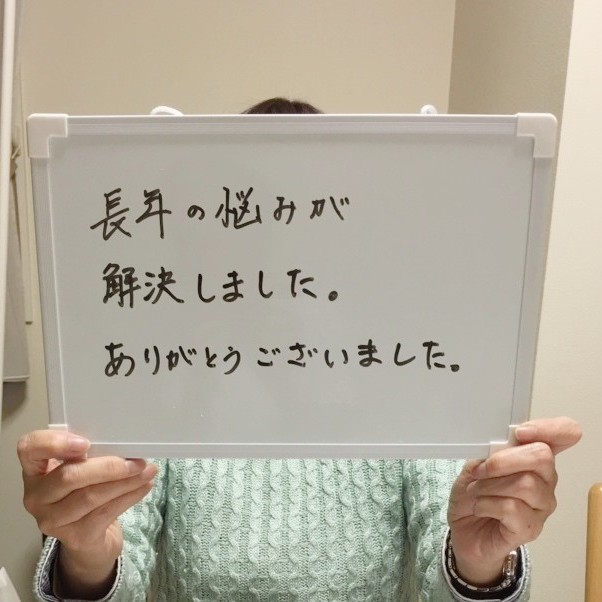 長年の悩みが
解決しました。
ありがとうございました。